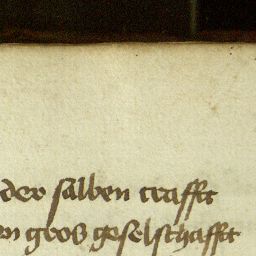 der salben crafft
n gros geselschafft